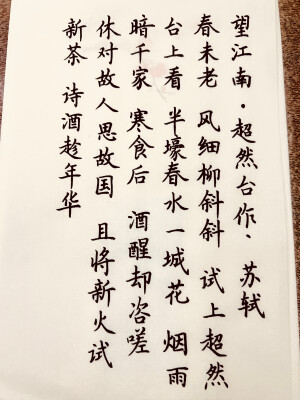 望江南·超然台作、 苏轼
春未老 风细柳斜斜 试上超然
台上看 半壕春水一城花 烟雨
暗千家 寒食后 酒醒却咨嗟
休对故人思故国 且将新火试
新茶 诗酒趁年华